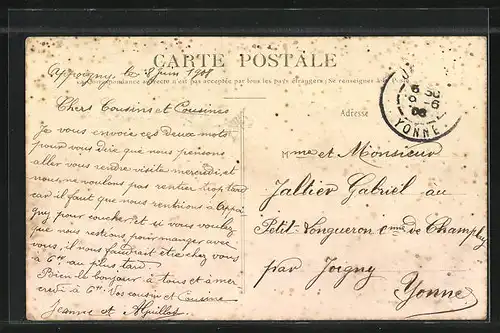 CARTE POSTALE
Appoigny, le 8 Juin 1908
La correspondance au recto n'est pas acceptée par tous les pays étrangers; Se renseignera à la Poste
Chers Cousins et Cousines
Je vous envoie ces deux mots
pour vous dire que nous pensons
aller vous rendre visite mercredi, et
nous ne voulons pas rentrer trop tard
car il faut que nous rentrions à Appoi
gny pour coucher, et si vous voulez
que nous restions pour manger avec
vous, il nous faudrait être chez vous
à 6h au plus tard.
Bien le bonjour à tous et à mer
credi à 6h. Vos cousin et Cousine
Jeanne et
Adresse
YONNE
Mme et Monsieur
Jallier Gabriel au
Petit-Longueron cne de Champlay
par Joigny
Yonne